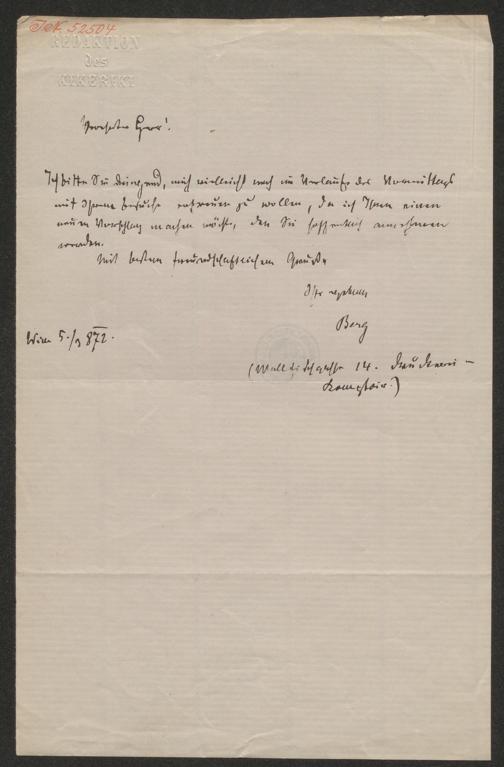 I.N. 52504
REDAKTION
des
KIKERIKI
Verehrter Herr!
Ich bitte Sie dringend, mich vielleicht noch im Verlaufe des Vormittags
mit Ihrem Besuche erfreuen zu wollen, da ich Ihnen einen
neuen Vorschlag machen möchte, den Sie hoffentlich annehmen
werden.
Mit besten freundschaftlichen Grüßen
Ihr ergebener
Berg
Wien 5./9 872.
(Wallfischgasse 14. Druckerei-
Komptoir.)